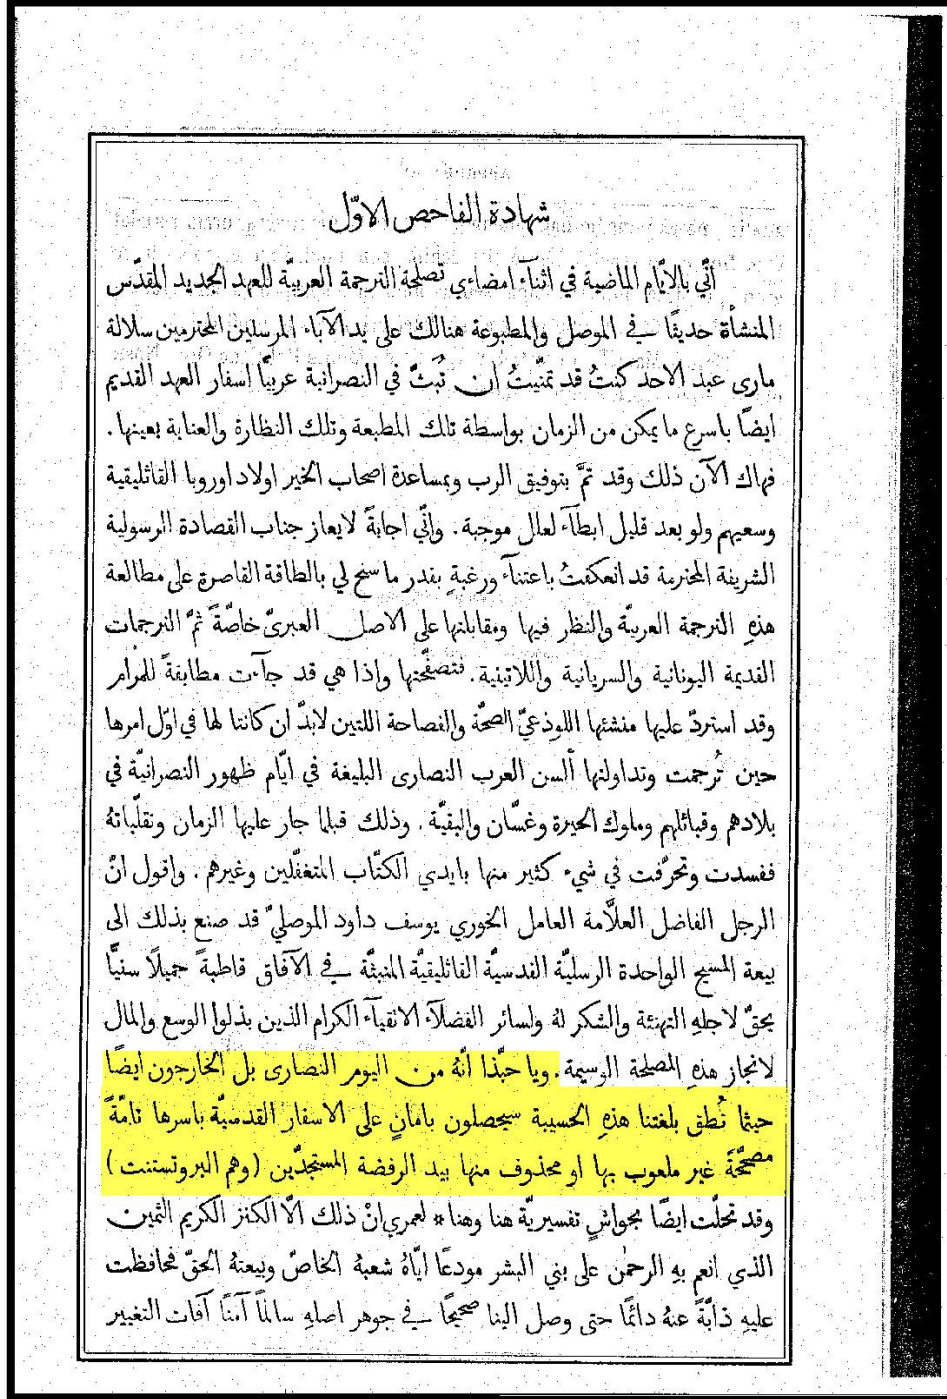 شهادة الفاحص الاوّل
انّي بالايّام الماضية في اثنآء امضاءي تصلحة الترجمة العربيّة للعهد الجديد المقدّس
المنشأة حديثًا في الموصل والمطبوعة هنالك على يد الآباء المرسلين المحترمين سلالة
ماري عبد الاحد كنتُ قد تمنّيتُ ان تُبَثّ في النصرانية عربيًّا اسفار العهد القديم
ايضًا باسرع ما يمكن من الزمان بواسطة تلك المطبعة وتلك النظارة والعناية بعينها .
فهاك الآن ذلك وقد تمَّ بتوفيق الرب وبمساعدة اصحاب الخير اولاد اوروبا القاثليقية
وسعيهم ولو بعد قليل ابطآء لعلل موجبة . وانّي اجابةً لايعاز جناب القصادة الرسولية
الشريفة المحترمة قد انعكفتُ باعتنآء ورغبةٍ بقدر ما سمح لي بالطاقة القاصرة على مطالعة
هذهِ الترجمة العربيّة والنظر فيها ومقابلتها على الاصل العبريّ خاصّةً ثمَّ الترجمات
القديمة اليونانية والسريانية واللاتينية . فتصفّحتها واذا هي قد جآءت مطابقةً للمرام
وقد استردّ عليها منشئها اللوذعيّ الصحّة والفصاحة اللتين لابدّ ان كانتا لها في اوّل امرها
حين تُرجمت وتداولتها ألسن العرب النصارى البليغة في ايّام ظهور النصرانيّة في
بلادهم وقبائلهم وملوك الحيرة وغسّان والبقيّة . وذلك قبلما جار عليها الزمان وتقلّباتهُ
ففسدت وتحرّفت في شيء كثير منها بايدي الكتّاب المتغفّلين وغيرهم . واقول انّ
الرجل الفاضل العلّامة العامل الخوري يوسف داود الموصليّ قد صنع بذلك الى
بيعة المسيح الواحدة الرسليّة القدسيّة القاثليقيّة المنبثّة في الآفاق قاطبةً جميلًا سنيًّا
يحقّ لاجلهِ التهنئة والشكر لهُ ولسائر الفضلآء الاتقيآء الكرام الذين بذلوا الوسع والمال
لانجاز هذهِ المصلحة الوسيمة . ويا حبّذا انّهُ من اليوم النصارى بل الخارجون ايضًا
حيثما نُطق بلغتنا هذهِ الحسيبة سيحصلون بامانٍ على الاسفار القدسيّة باسرها تامّةً
مصحّحةً غير ملعوب بها او محذوف منها بيد الرفضة المستجدّين (وهم البروتستنت)
وقد تحلّت ايضًا بحواشٍ تفسيريّة هنا وهنا * لعمري انْ ذلك الّا الكنز الكريم الثمين
الذي انعم بهِ الرحمٰن على بني البشر مودعًا ايّاهُ شعبهُ الخاصّ وبيعتهُ الحقّ فحافظت
عليهِ ذابّةً عنهُ دائمًا حتى وصل الينا صحيحًا في جوهر اصلهِ سالمًا آمنًا آفات التغيير